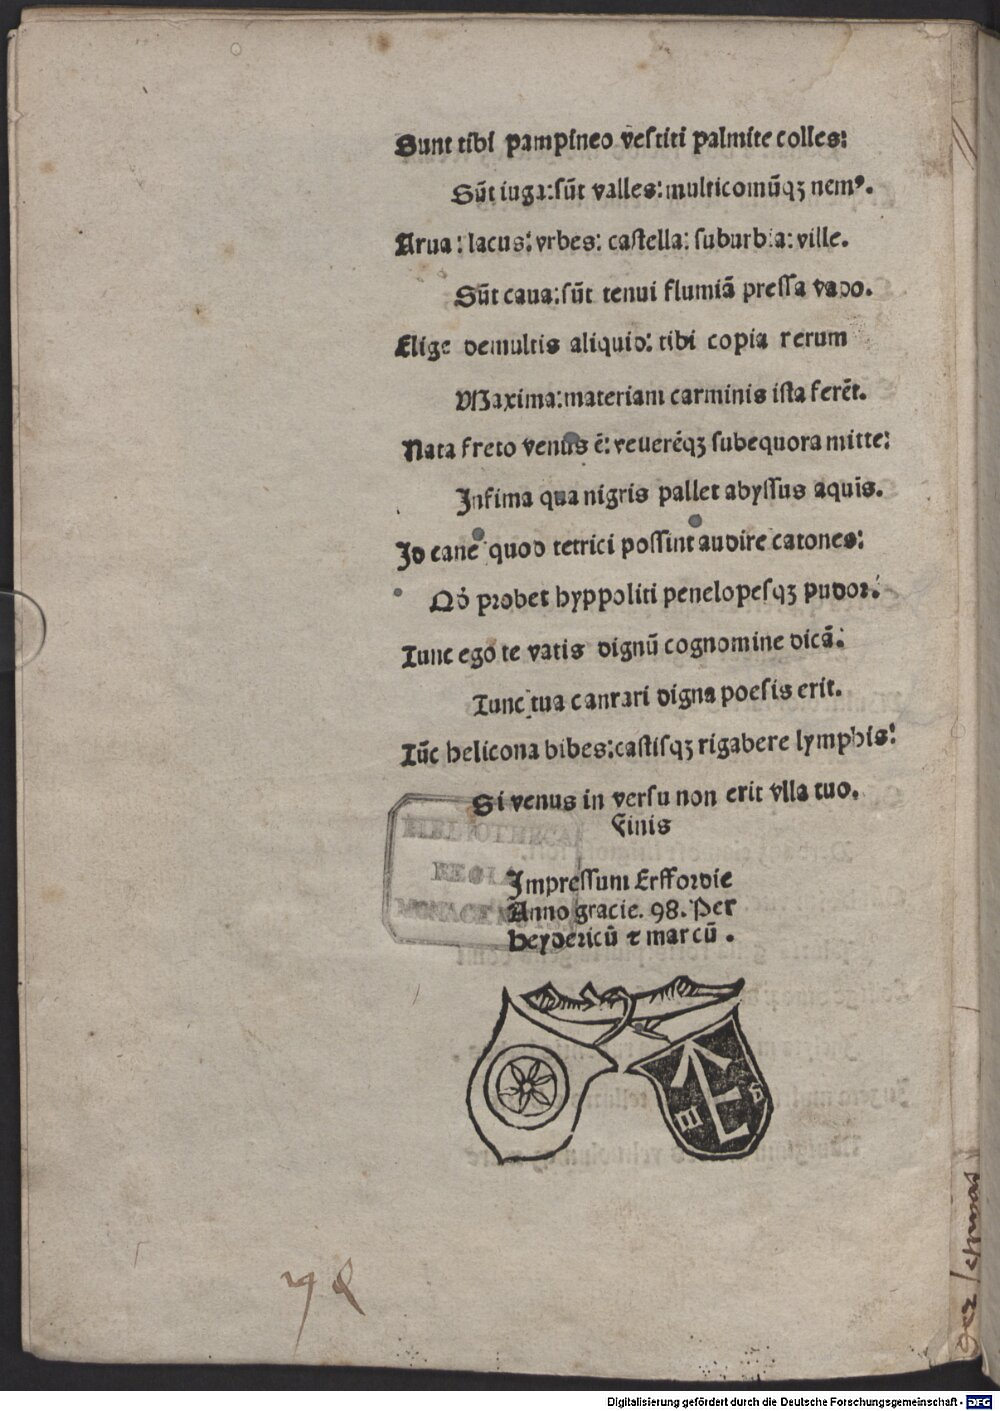 Sunt tibi pampineo vestiti palmite colles:
Sūt iuga: sūt valles: multicomūqꝫ nemꝰ.
Arua: lacus: vrbes: castella: suburbia: ville.
Sūt caua: sūt tenui flumiā pressa vado.
Elige demultis aliquid: tibi copia rerum
Maxima: materiam carminis ista ferēt.
Nata freto venus ē: reuerēqꝫ subequora mitte:
Infima qua nigris pallet abyssus aquis.
Id cane quod tetrici possint audire catones:
Qđ probet hyppoliti penelopesqꝫ pudor.
Tunc ego te vatis dignū cognomine dicā:
Tunc tua cantari digna poesis erit.
Tūc helicona bibes: castisqꝫ rigabere lymphis:
Si venus in versu non erit vlla tuo.
Finis
BIBLIOTHECA
REGIA
MONACENSIS
Impressum Erffordie
Anno gracie. 98. Per
heydericū ⁊ marcū.
98
Digitalisierung gefördert durch die Deutsche Forschungsgemeinschaft - DFG